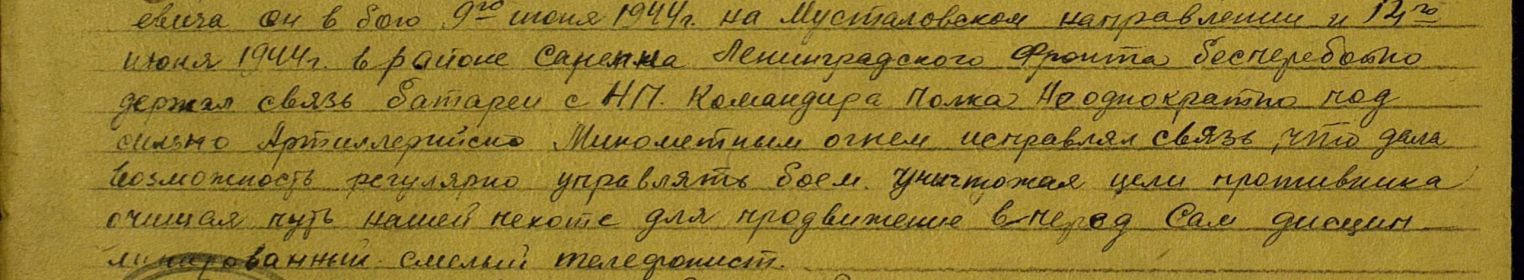 евича он в бою 9го июня 1944г. на Мусталовском направлении и 12го
июня 1944г. в районе Саренна Ленинградского Фронта бесперебойно
держал связь батареи с НП. Командира Полка Неоднократно под
сильно Артиллерийско Минометным огнем исправлял связь, что дала
возможность регулярно управлять боем. Уничтожая цели противника
очищая путь нашей пехоте для продвижение в-перед Сам дисцип
линированный смелый телефонист.